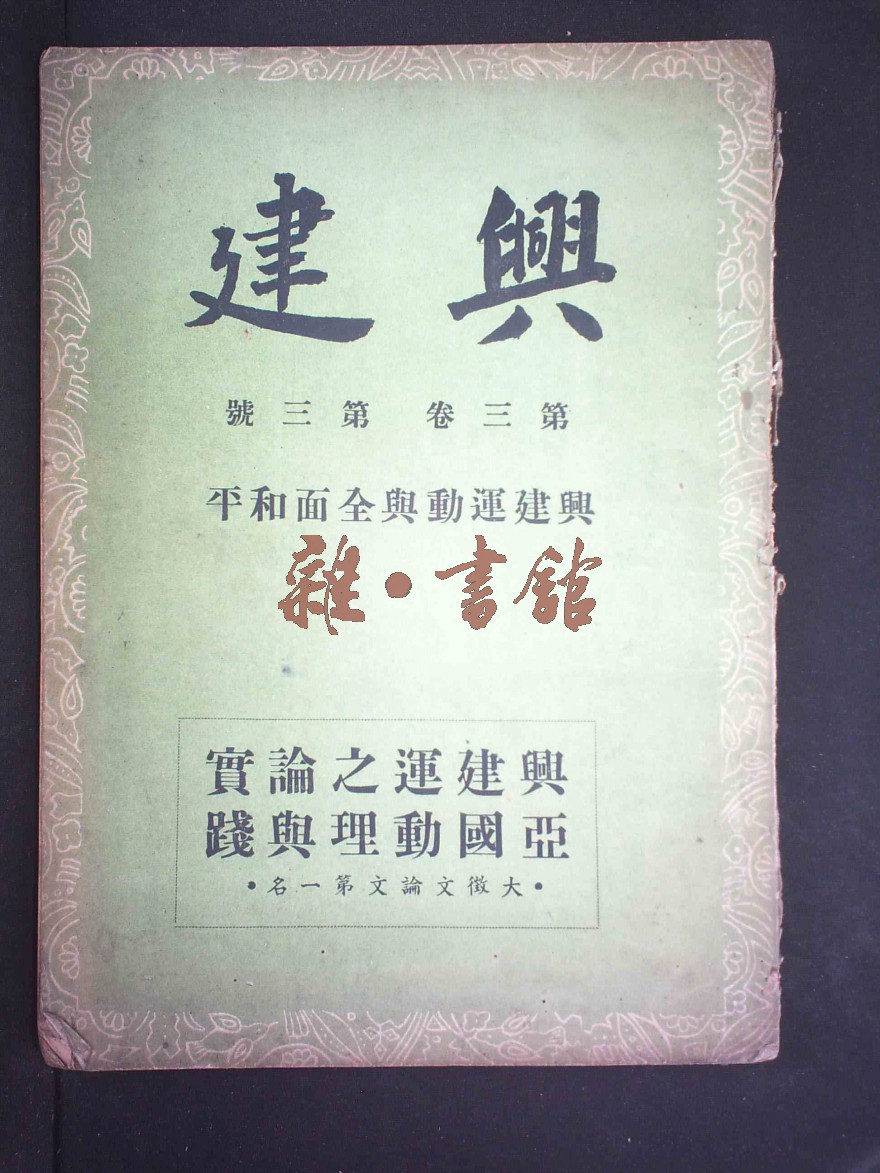 興建
第三卷 第三號
興建運動與全面和平
雜•書館
興亞
建國
運動
之理
論與
實踐
•大徵文論文第一名•